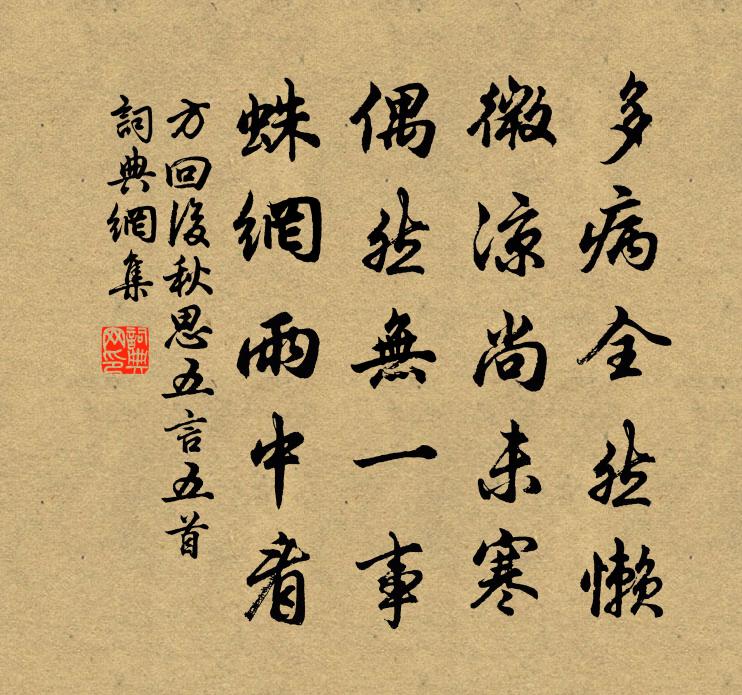 多病全然懒
微凉尚未寒
偶然無一事
蛛網雨中看
方回後秋思五言五首
詞典網集
詞典網印